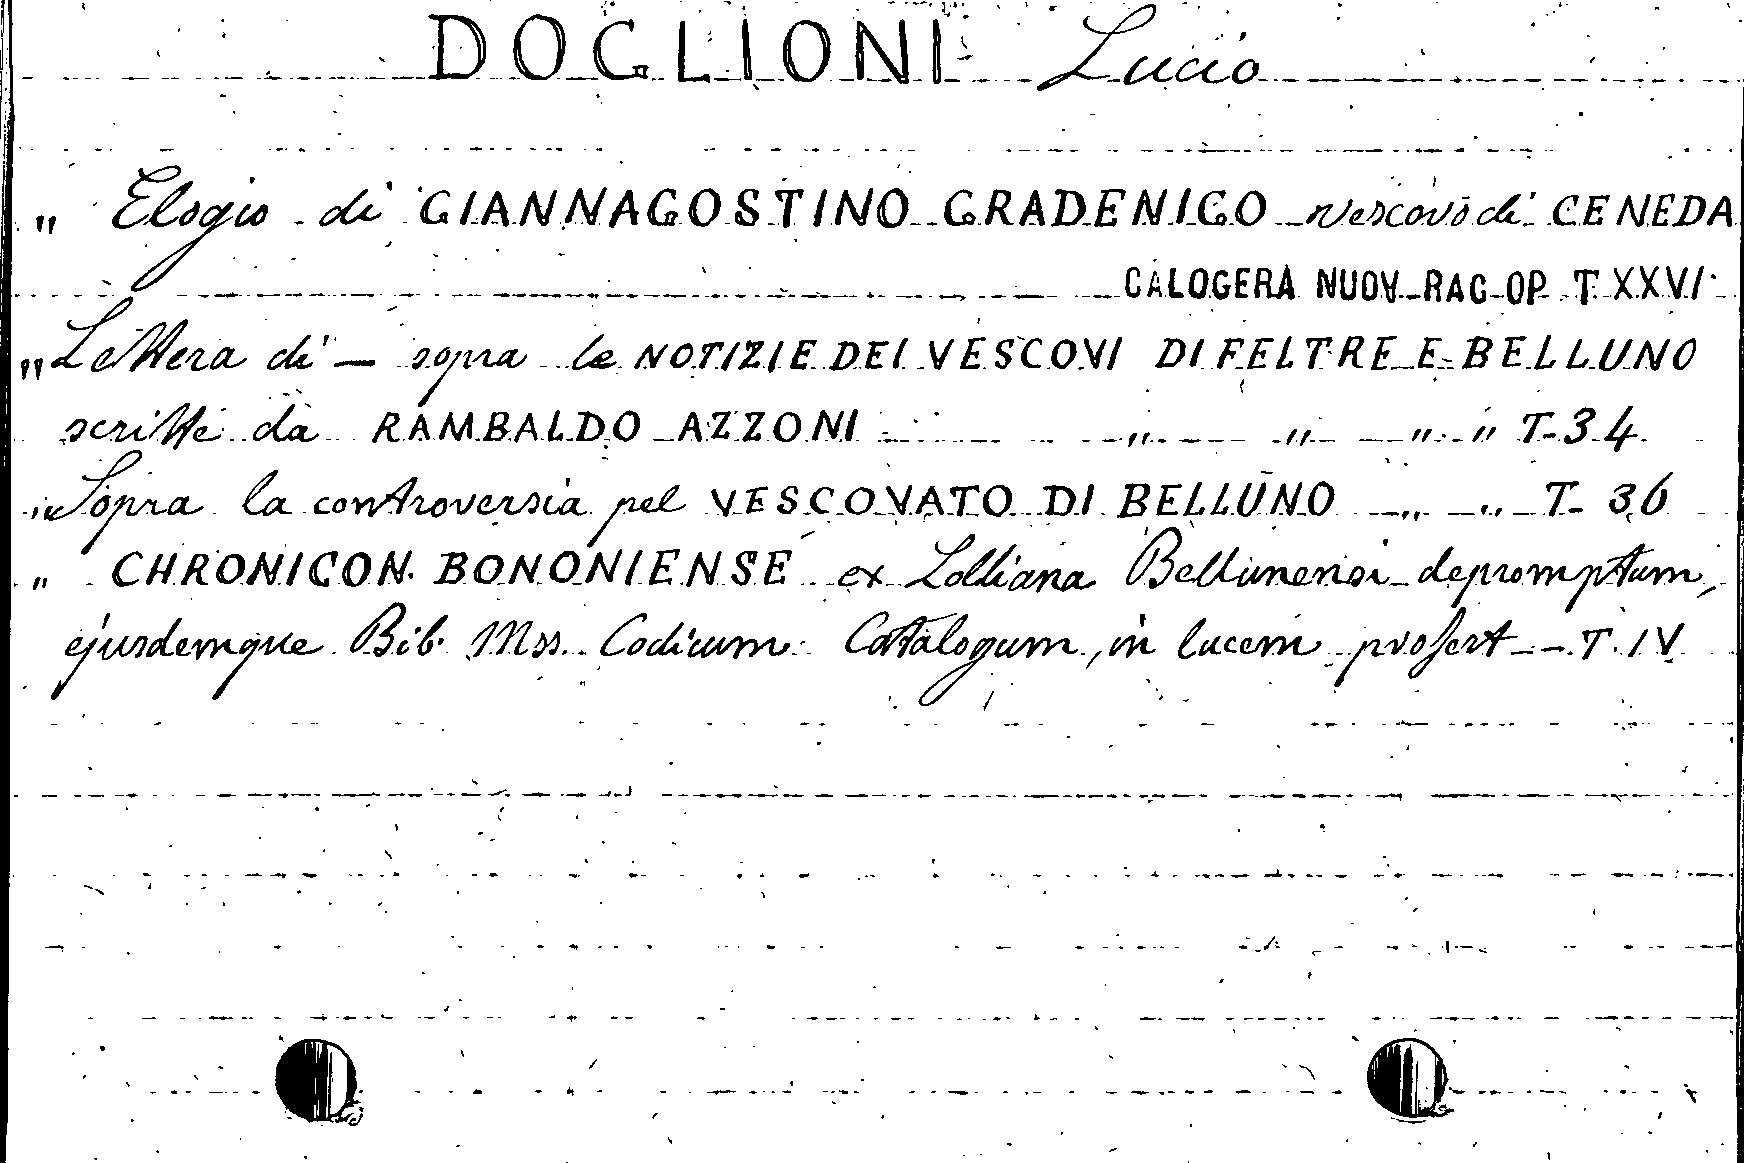 DOGLIONI Lucio
" Elogio di GIANNAGOSTINO GRADENIGO vescovo di CENEDA
CALOGERA NUOV RAC OP T XXVI
" Lettera di — sopra le NOTIZIE DEI VESCOVI DI FELTRE E BELLUNO
scritte da RAMBALDO AZZONI " " " " T. 34
" Sopra la controversia pel VESCOVATO DI BELLUNO " " T. 36
" CHRONICON BONONIENSE ex Lolliana Bellunensi depromptum,
ejusdemque Bib. Mss. Codicum Catalogum, in lucem profert - - T. IV